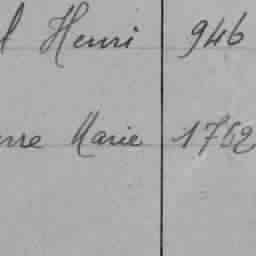 l Henri 946
erre Marie 1762